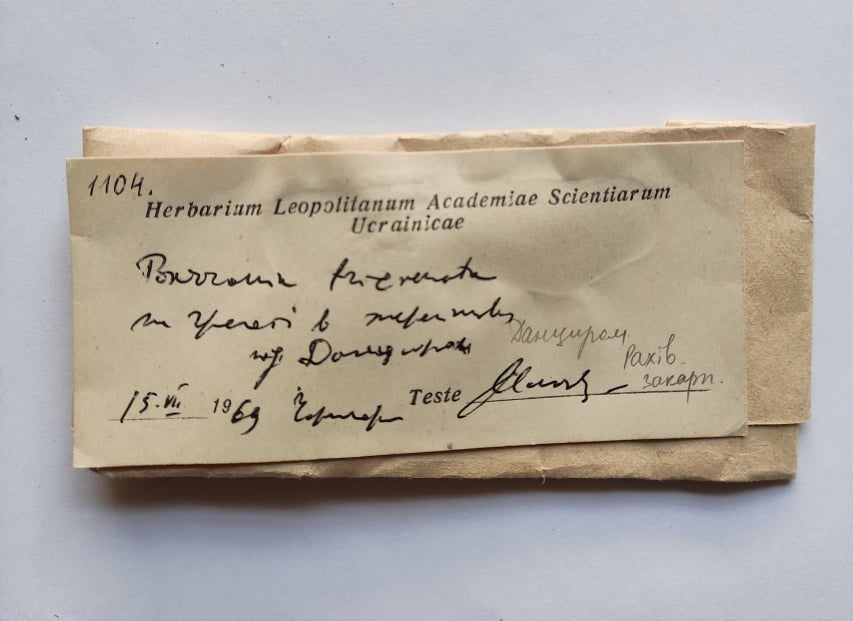 1104.
Herbarium Leopolitanum Academiae Scientiarum
Ucrainicae
Bazzania tricrenata
на в
під Данциром
Данциром
Рахів-
закарп.
15.VII 1969 Teste